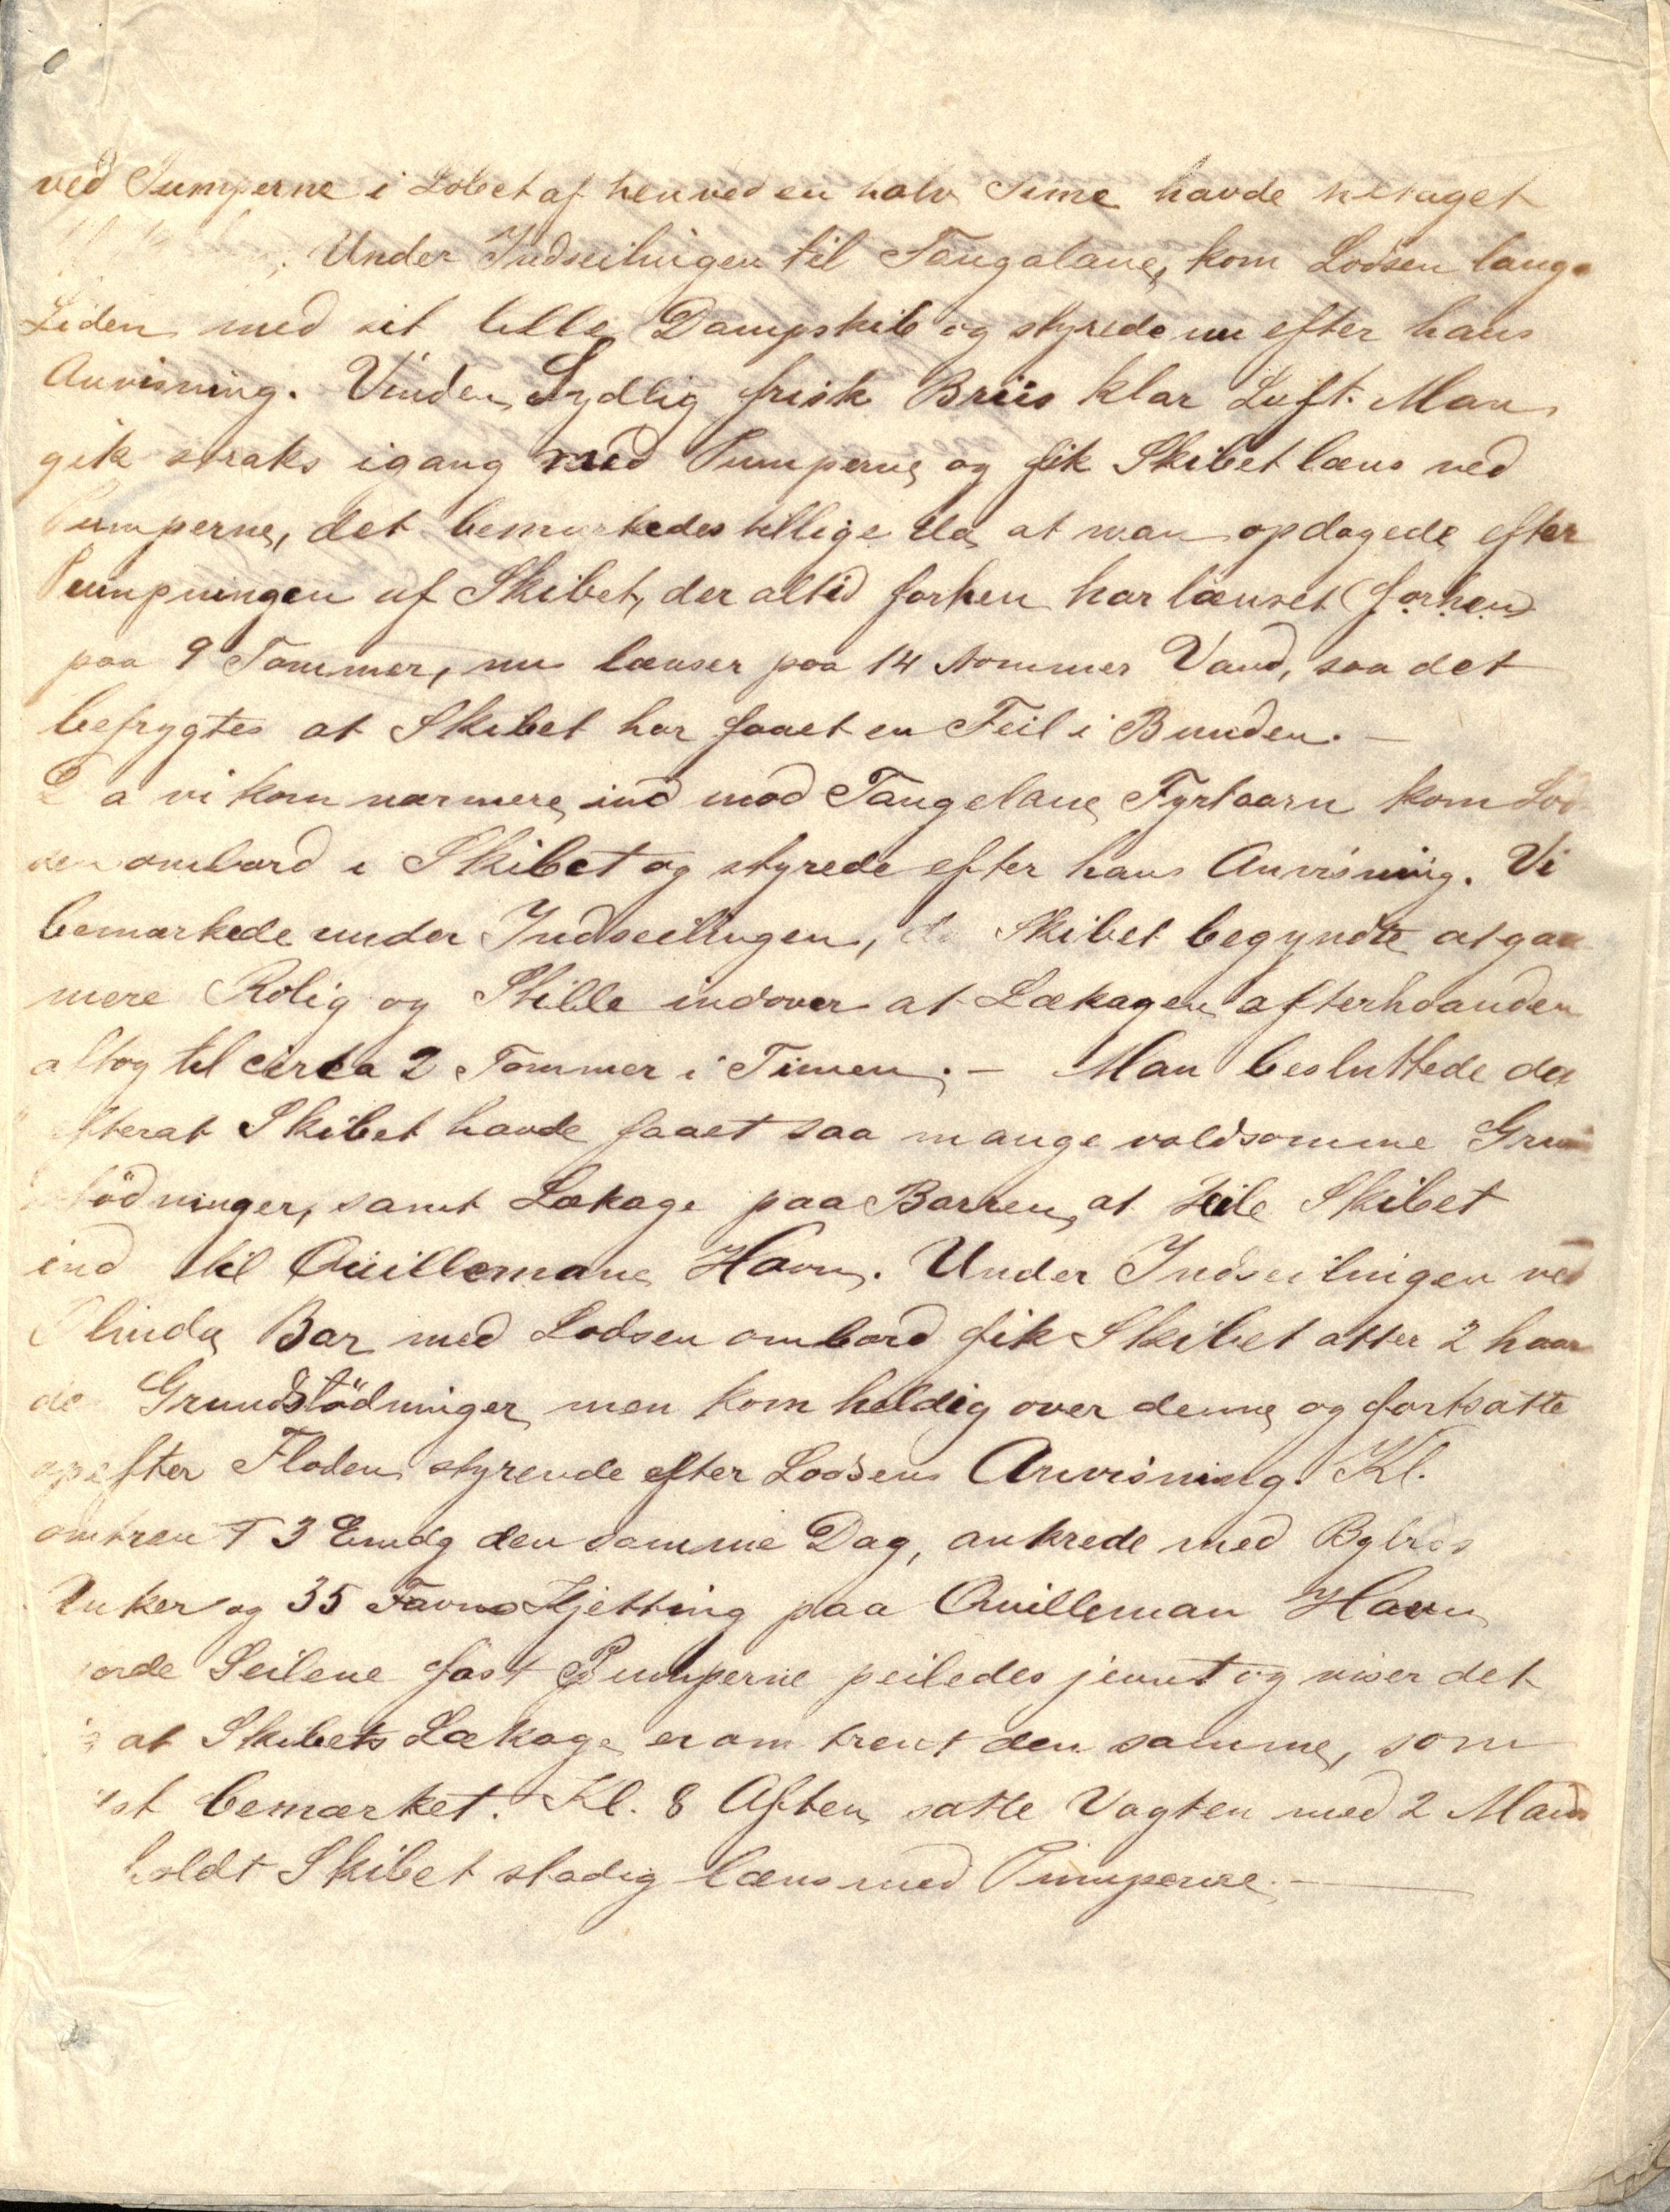 ved Pumperne i Löbet af henved en halv Time havde
Under Indseilingen til Tangalane, kom Lodsen langs
Siden med sit lille Dampskib og styrede nu efter hans
Anvisning. Vinden Sydlig frisk Briis klar Luft. Man
gik straks igang med Pumperne og fik Skibet læns ved
Pumperne, det bemærkedes tillige da at man opdagede efter
Pumpningen af Skibet, der altid forhen har lænset (forhen)
paa 9 Tommer, nu lænser paa 14 tommer Vand, saa det
befrygtes at Skibet har faaet en Feil i Bunden. —
Da vi kom nærmere ind mod Tangelane Fyrtaarn kom Lod
sen ombord i Skibet og styrede efter hans Anvisning. Vi
bemærkede under Indseilingen, da Skibet begyndte at gaa
mere Rolig og Stille indover at Lækagen efterhaanden
aftog til circa 2 Tommer i Timen. — Man besluttede da
efterat Skibet havde faaet saa mange voldsomme Grund
stödninger, samt Lækage paa Barren, at seile Skibet
ind til Quillemane Havn. Under Indseilingen ved
Olinda Bar med Lodsen ombord fik Skibet atter 2 haar
de Grundstödninger men kom heldig over denne og fortsatte
opefter Floden styrende efter Lodsens Anvisning. Kl.
omtrent 3 Emdg den samme Dag, ankrede med Bgbrds
Anker og 35 Favne Kjetting paa Quilleman Havn
Seilene fast Pumperne peiledes jevnt og viser det
at Skibets Lækage er omtrent den samme, som
sist bemærket. Kl. 8 Aften satte Vagten med 2 Mand
holdt Skibet stadig læns med Pumperne. —